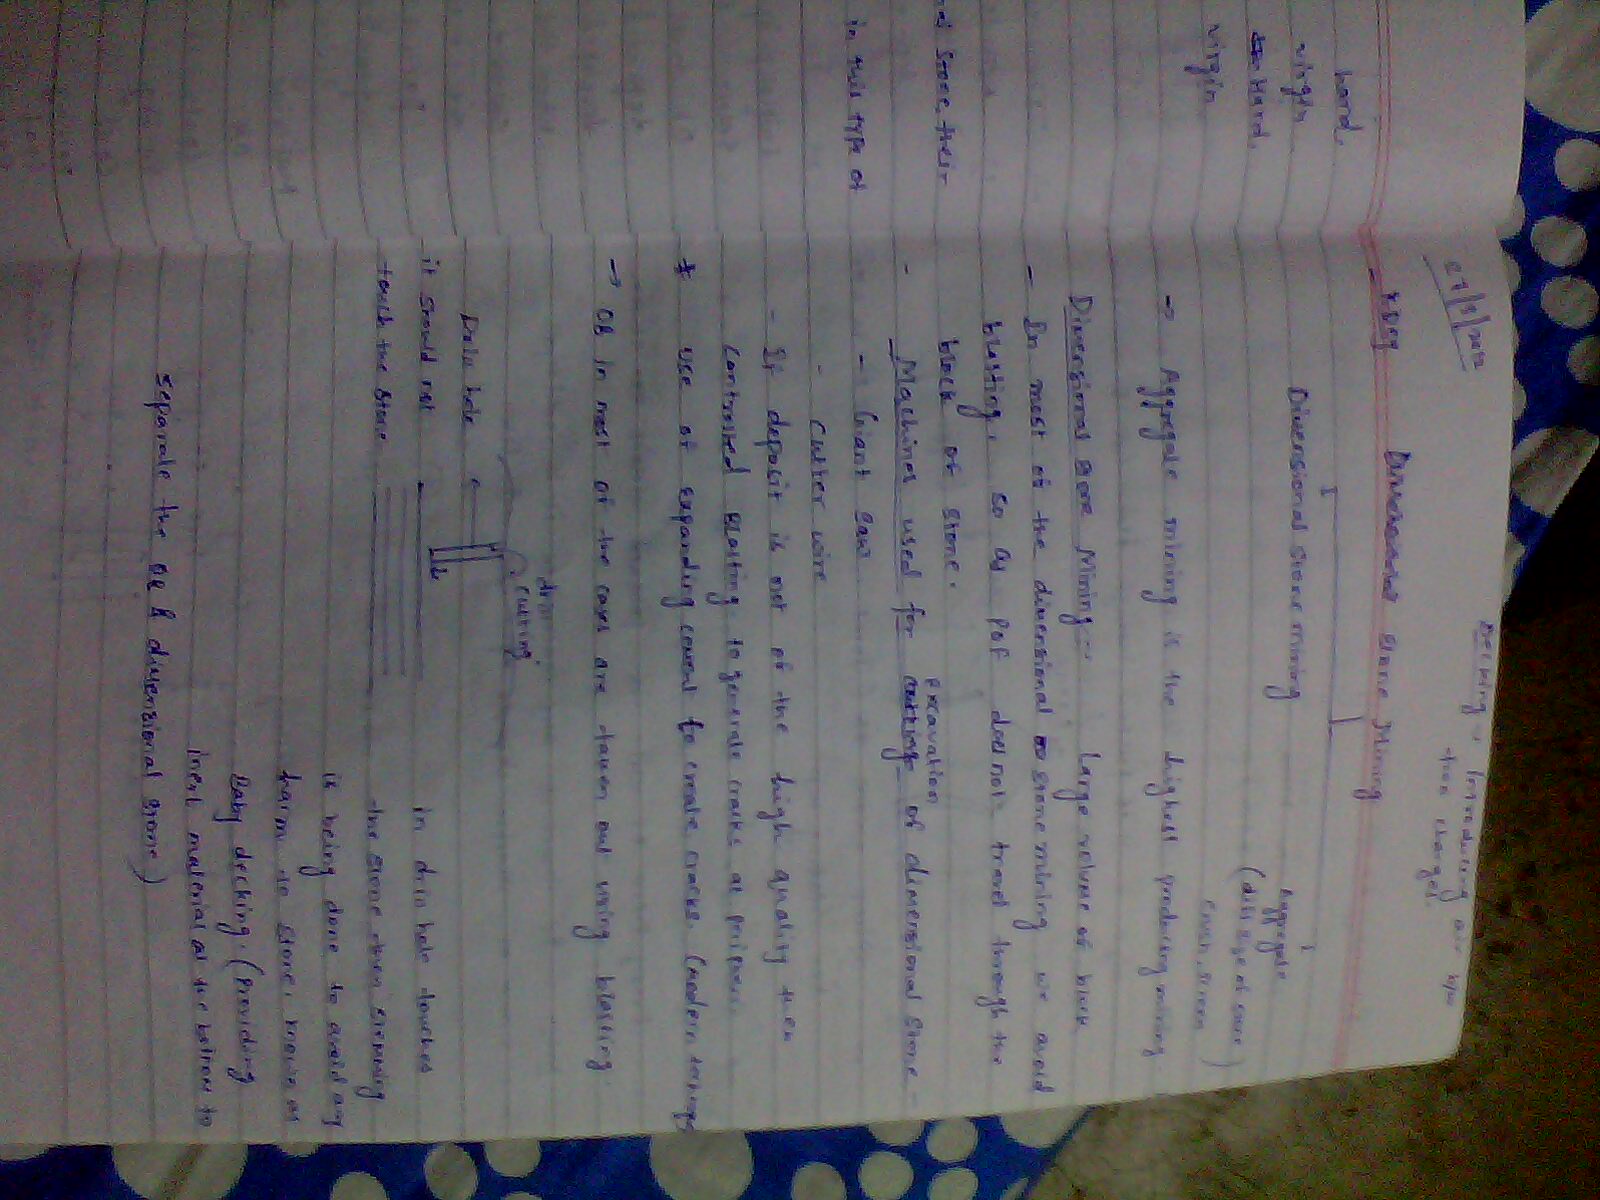 hard
virgin
Hard
virgin
stone, their
in this type of
Decking: Introducing air
two charges
Stone Mining
Dimensional stone mining
Aggregate
(diff. size of stone)
crush, screen
→ Aggregate mining is the highest producing mining.
Dimensional stone Mining:- Large volume of block
- In most of the dimensional stone mining we avoid
blasting, so as PoF does not travel through the
block of stone.
excavation
- Machines used for cutting of dimensional stone -
- Giant saw
- cutter wire
- If deposit is not of the high quality then
controlled blasting to generate cracks at
* use of expanding cement to create cracks.
→ OB in most of the cases are taken out using blasting
drill
cutting
Drill hole
it should not
touch the stone
In drill hole touches
the stone then stemming
is being done to avoid any
harm to stone, known as
Baby decking. (Providing
inert material at the bottom to
separate the OB & dimensional stone)